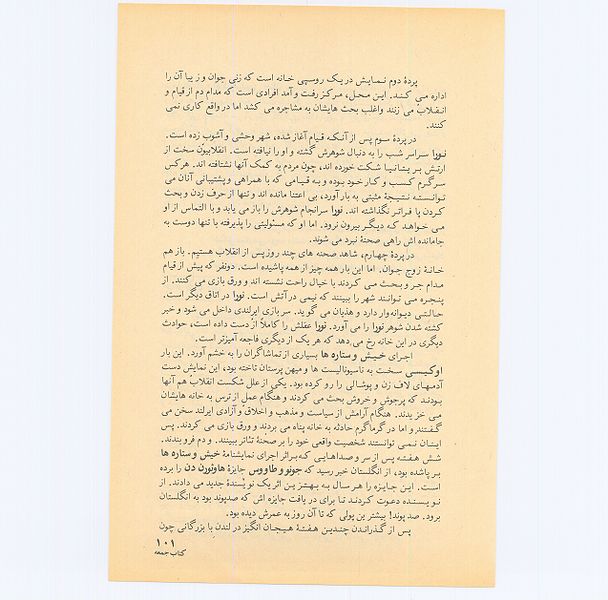 پردهٔ دوم نمایش در یک روسپی خانه است که زنی جوان و زیبا آن را
اداره می کند. این محل، مرکز رفت و آمد افرادی است که مدام دم از قیام و
انقلاب می زنند و اغلب بحث هایشان به مشاجره می کشد اما در واقع کاری نمی
کنند.
در پردهٔ سوم پس از آنکه قیام آغاز شده، شهر وحشی و آشوب زده است.
نورا سراسر شب را به دنبال شوهرش گشته و او را نیافته است. انقلابیون سخت از
ارتش بریتانیا شکت خورده اند، چون مردم به کمک آنها نشتافته اند. هرکس
سرگرم کسب و کار خود بوده و به قیامی که با همراهی و پشتیبانی آنان می
توانسته نتیجهٔ مثبتی به بار آورد، بی اعتنا مانده اند و تنها از حرف زدن و بحث
کردن پا فراتر نگذاشته اند. نورا سرانجام شوهرش را باز می یابد و با التماس از او
می خواهد که دیگر بیرون نرود. اما او که مسئولیتی را پذیرفته با تنها دوست به
جامانده اش راهی صحنهٔ نبرد می شوند.
در پردهٔ چهارم، شاهد صحنه های چند روز پس از انقلاب هستیم. باز هم
خانهٔ زوج جوان. اما این بار همه چیز از همه پاشیده است. دونفر که پیش از قیام
مدام جر و بحث می کردند با خیال راحت نشسته اند و ورق بازی می کنند. از
پنجره می توانند شهر را ببینند که نیمی در آتش است. نورا در اتاق دیگر است.
حالتی دیوانه وار دارد و هذیان می گوید. سربازی ایرلندی داخل می شود و خبر
کشته شدن شوهر نورا را می آورد. نورا عقلش را کاملاً از دست داده است، حوادث
دیگری در این خانه رخ می دهد که هر یک از دیگری فاجعه آمیزتر است.
اجرای خیش و ستاره ها بسیاری از تماشاگران را به خشم آورد. این بار
اوکیسی سخت به ناسیونالیست ها و میهن پرستان تاخته بود، این نمایش دست
آدمهای لاف زن و پوشالی را رو کرده بود. یکی از علل شکست انقلاب هم آنها
بودند که پرجوش و خروش بحث می کردند و هنگام عمل از ترس به خانه هایشان
می خزیدند. هنگام آرامش از سیاست و مذهب و اخلاق و آزادی ایرلند سخن می
گفتند و اما در گرماگرم حادثه به خانه پناه می بردند و ورق بازی می کردند. پس
اینان نمی توانستند شخصیت واقعی خود را بر صحنهٔ تئاتر ببینند. و دم فرو بندند.
شش هفته پس از سر و صداهایی که براثر اجرای نمایشنامهٔ خیش و ستاره ها
برپاشده بود، از انگلستان خبر رسید که جونو و طاووس جایزهٔ هاوثورن دن را برده
است. این جایزه را هر سال به بهترین اثر یک نویسندهٔ جدید می دادند. از
نویسنده دعوت کردند تا برای دریافت جایزه اش که صدپوند بود به انگلستان
برود. صد پوند! بیشتر بن پولی که تا آن روز به عمرش دیده بود.
پس از گذراندن چندین هفتهٔ هیجان انگیز در لندن با بزرگانی چون
۱۰۱
کتاب جمعه